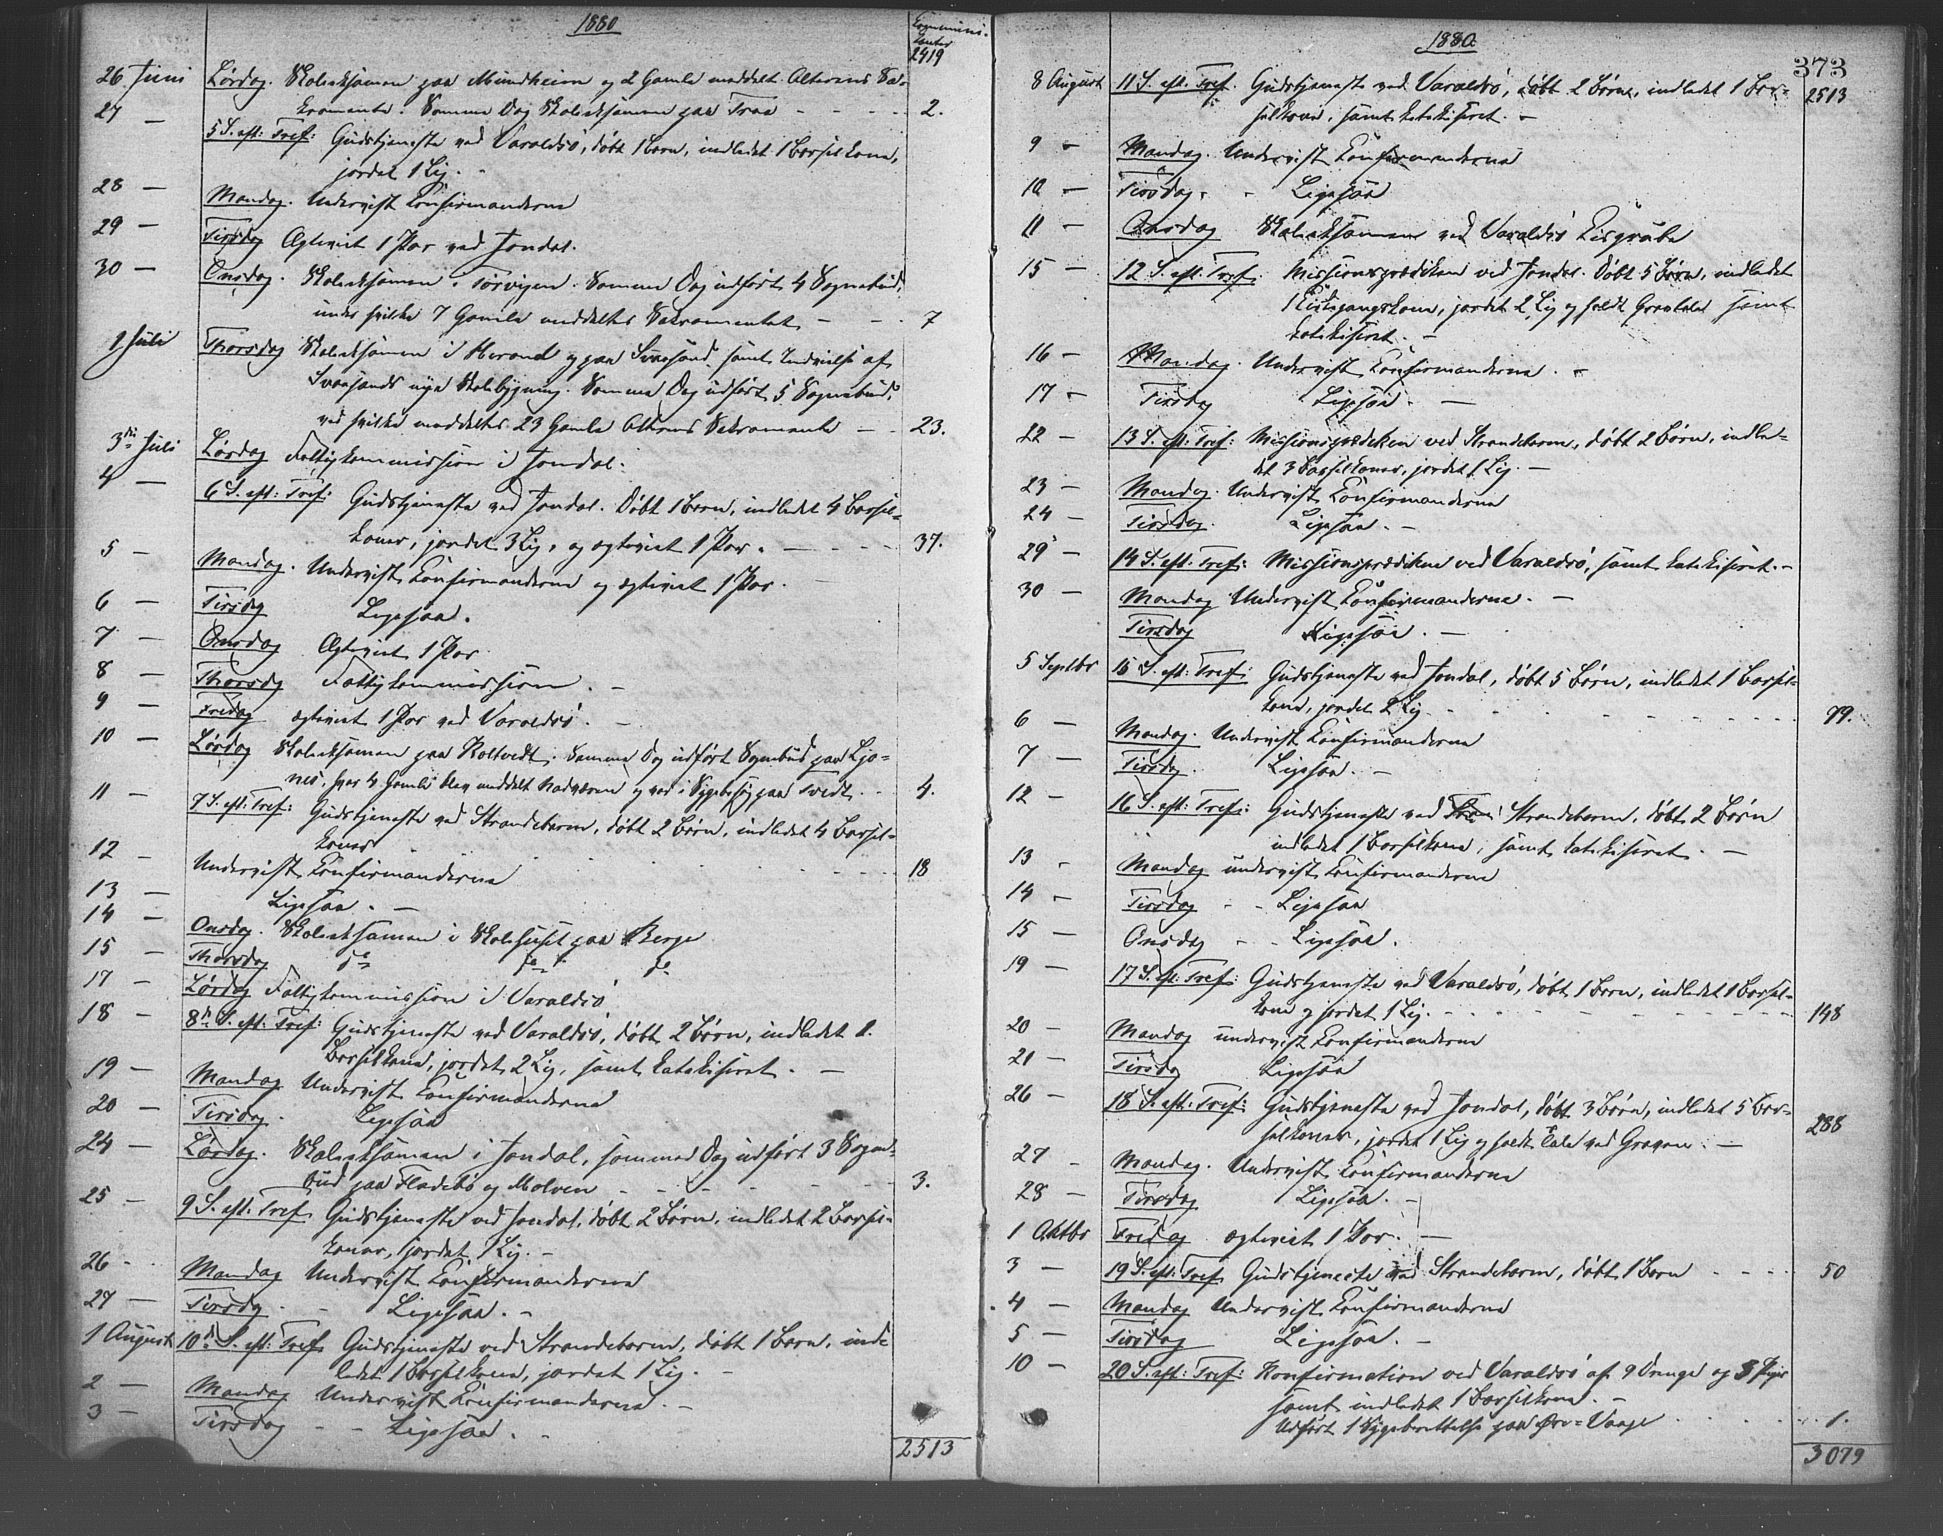 1880
Communi-
kanter
2419
26 Juni Lørdag. Skoleeksamen paa Mundheim og 2 Gamle meddelt Alterens Sa-
27 — kramente. Samme Dag Skoleeksamen paa Traa - - - - 2.
5 S. eft: Tref: Gudstjeneste ved Varaldsø, døbt 1 Barn, indledet 1 Barselkone,
jordet 1 Lig.
28 — Mandag. Undervist Konfirmanderne
29 — Tirsdag Ægteviet 1 Par ved Jondal.
30 — Onsdag. Skoleeksamen i Torvigen. Samme Dag udført 4 Sognebud,
under hvilke 7 Gamle meddeltes Sakramentet — - - 7
1 Juli Thorsdag Skoleeksamen i Herand og paa Svaasand samt Indvielse af
Svaasands nye Skolebygning. Samme Dag udført 5 Sognebud,
ved hvilke meddeltes 23 Gamle Alterens Sakramente — - 23.
3die Juli Lørdag Fattigkommission i Jondal.
4 — 6 S. eft: Tref: Gudstjeneste ved Jondal. Døbt 1 Barn, indledet 4 Barsel-
koner, jordet 3 Lig, og ægteviet 1 Par. — - - - 37.
5 — Mandag. Undervist Konfirmanderne og ægteviet 1 Par.
6 — Tirsdag Ligesaa.
7 — Onsdag Ægteviet 1 Par
8 — Thorsdg Fattigkommission. —
9 — Fredag ægteviet 1 Par ved Varaldsø. —
10 — Lørdag Skoleeksamen paa Kollvedt. Samme Dag udført Sognebud paa Ljo-
nes, hvor 4 Gamle blev meddelt Nadveren og var i Sygebesøg paa Tvedt. - - 4.
11 — 7 S. eft: Tref: Gudstjeneste ved Strandebarm, døbt 2 Børn, indledet 4 Barsel-
koner - - - - 18
12 - Undervist Konfirmanderne
13 — Ligesaa. —
14 — Onsdag. Skoleeksamen i Skolehuset paa Berge
15 — Thorsdag do do do
17 — Lørdag Fattigkommission i Varaldsø
18 — 8de S. eft: Tref: Gudstjeneste ved Varaldsø, døbt 2 Børn, indledet 1.
Barselkone, jordet 2 Lig, samt katekiseret. —
19 — Mandag Undervist Konfirmanderne
20 — Tirsdag. Ligesaa
24 — Lørdag. Skoleeksamen i Jondal, samme Dag udført 3 Sogne-
bud paa Fladebø og Molven - - - - 3.
25 — 9 S. eft: Tref Gudstjeneste ved Jondal, døbt 2 Børn, indledet 2 Barsel-
koner, jordet 1 Lig. —
26 - Mandag Undervist Konfirmanderne
27 — Tirsdg. - Ligesaa. —
1 August 10de S. eft: Tref. Gudstjeneste ved Strandebarm, døbt 1 Barn, ind-
ledet 1 Barselkone, jordet 1 Lig. —
2 — Mandag Undervist Konfirmanderne. —
3 — Tirsdag - - Ligesaa.
2513
1880
373
2513
8 August 11 S. eft. Tref. Gudstjeneste ved Varaldsø, døbt 2 Børn, indledet 1 Bar-
selkone, samt katekiseret. —
9 — Mandag. Undervist Konfirmanderne
10 — Tirsdag. - Ligesaa
11 — Onsdag Skoleeksamen ved Varaldsø Kisgrube
15 — 12 S. eft. Tref. Missionsprædiken ved Jondal. Døbt 5 Børn, indledet
1 Kirkegangskone, jordet 2 Lig og holdt Gravtale samt
katekiseret. —
16 — Mandag. Undervist Konfirmanderne. —
17 - Tirsdag Ligesaa. —
22 — 13 S. eft: Tref: Missionsprædiken ved Strandebarm, døbt 2 Børn, indle-
det 3 Barselkoner, jordet 1 Lig. —
23 — Mandag. Undervist Konfirmanderne
24 — Tirsdag. Ligesaa. —
29 — 14 S. eft: Tref: Missionsprædiken ved Varaldsø, samt katekiseret. —
30 — Mandag Undervist Konfirmanderne. —
Tirsdag Ligesaa. —
5 Septbr 15 S. eft: Tref: Gudstjeneste ved Jondal, døbt 5 Børn, indledet 1 Barsel-
kone, jordet 2 Lig - - - - 79.
6 — Mandag. Undervist Konfirmanderne
7 — Tirsdag. Ligesaa. —
12 — 16 S. eft: Tref: Gudstjeneste ved Strandebarm, døbt 2 Børn
indledet 1 Barselkone, samt katekiseret. —
13 - Mandag undervist Konfirmanderne
14 - Tirsdag - - Ligesaa
15 — Onsdag - - Ligesaa.
19 — 17 S. eft: Tref: Gudstjeneste ved Varaldsø, døbt 1 Barn, indledet 1 Barsel-
kone og jordet 1 Lig. - - - - 148
20 — Mandag undervist Konfirmanderne
21 — Tirsdag Ligesaa
26 — 18 S. eft: Tref: Gudstjeneste ved Jondal, døbt 3 Børn, indledet 5 Bar-
selkoner, jordet 1 Lig og holdt Tale ved Graven. — 288
27 - Mandag. Undervist Konfirmanderne
28 — Tirsdag Ligesaa. —
1 Oktbr Fredag ægteviet 1 Par. —
3 — 19 S. eft: Tref Gudstjeneste ved Strandebarm, døbt 1 Barn - - - - 50
4 — Mandag Undervist Konfirmanderne
5 — Tirsdag Ligesaa. —
10 — 20 S. eft: Tref: Konfirmation ved Varaldsø af 9 Drenge og 3 Piger
samt indledet 1 Barselkone. —
Udført 1 Sygeberettelse paa Øvre-Vaage - - - - 1.
3079